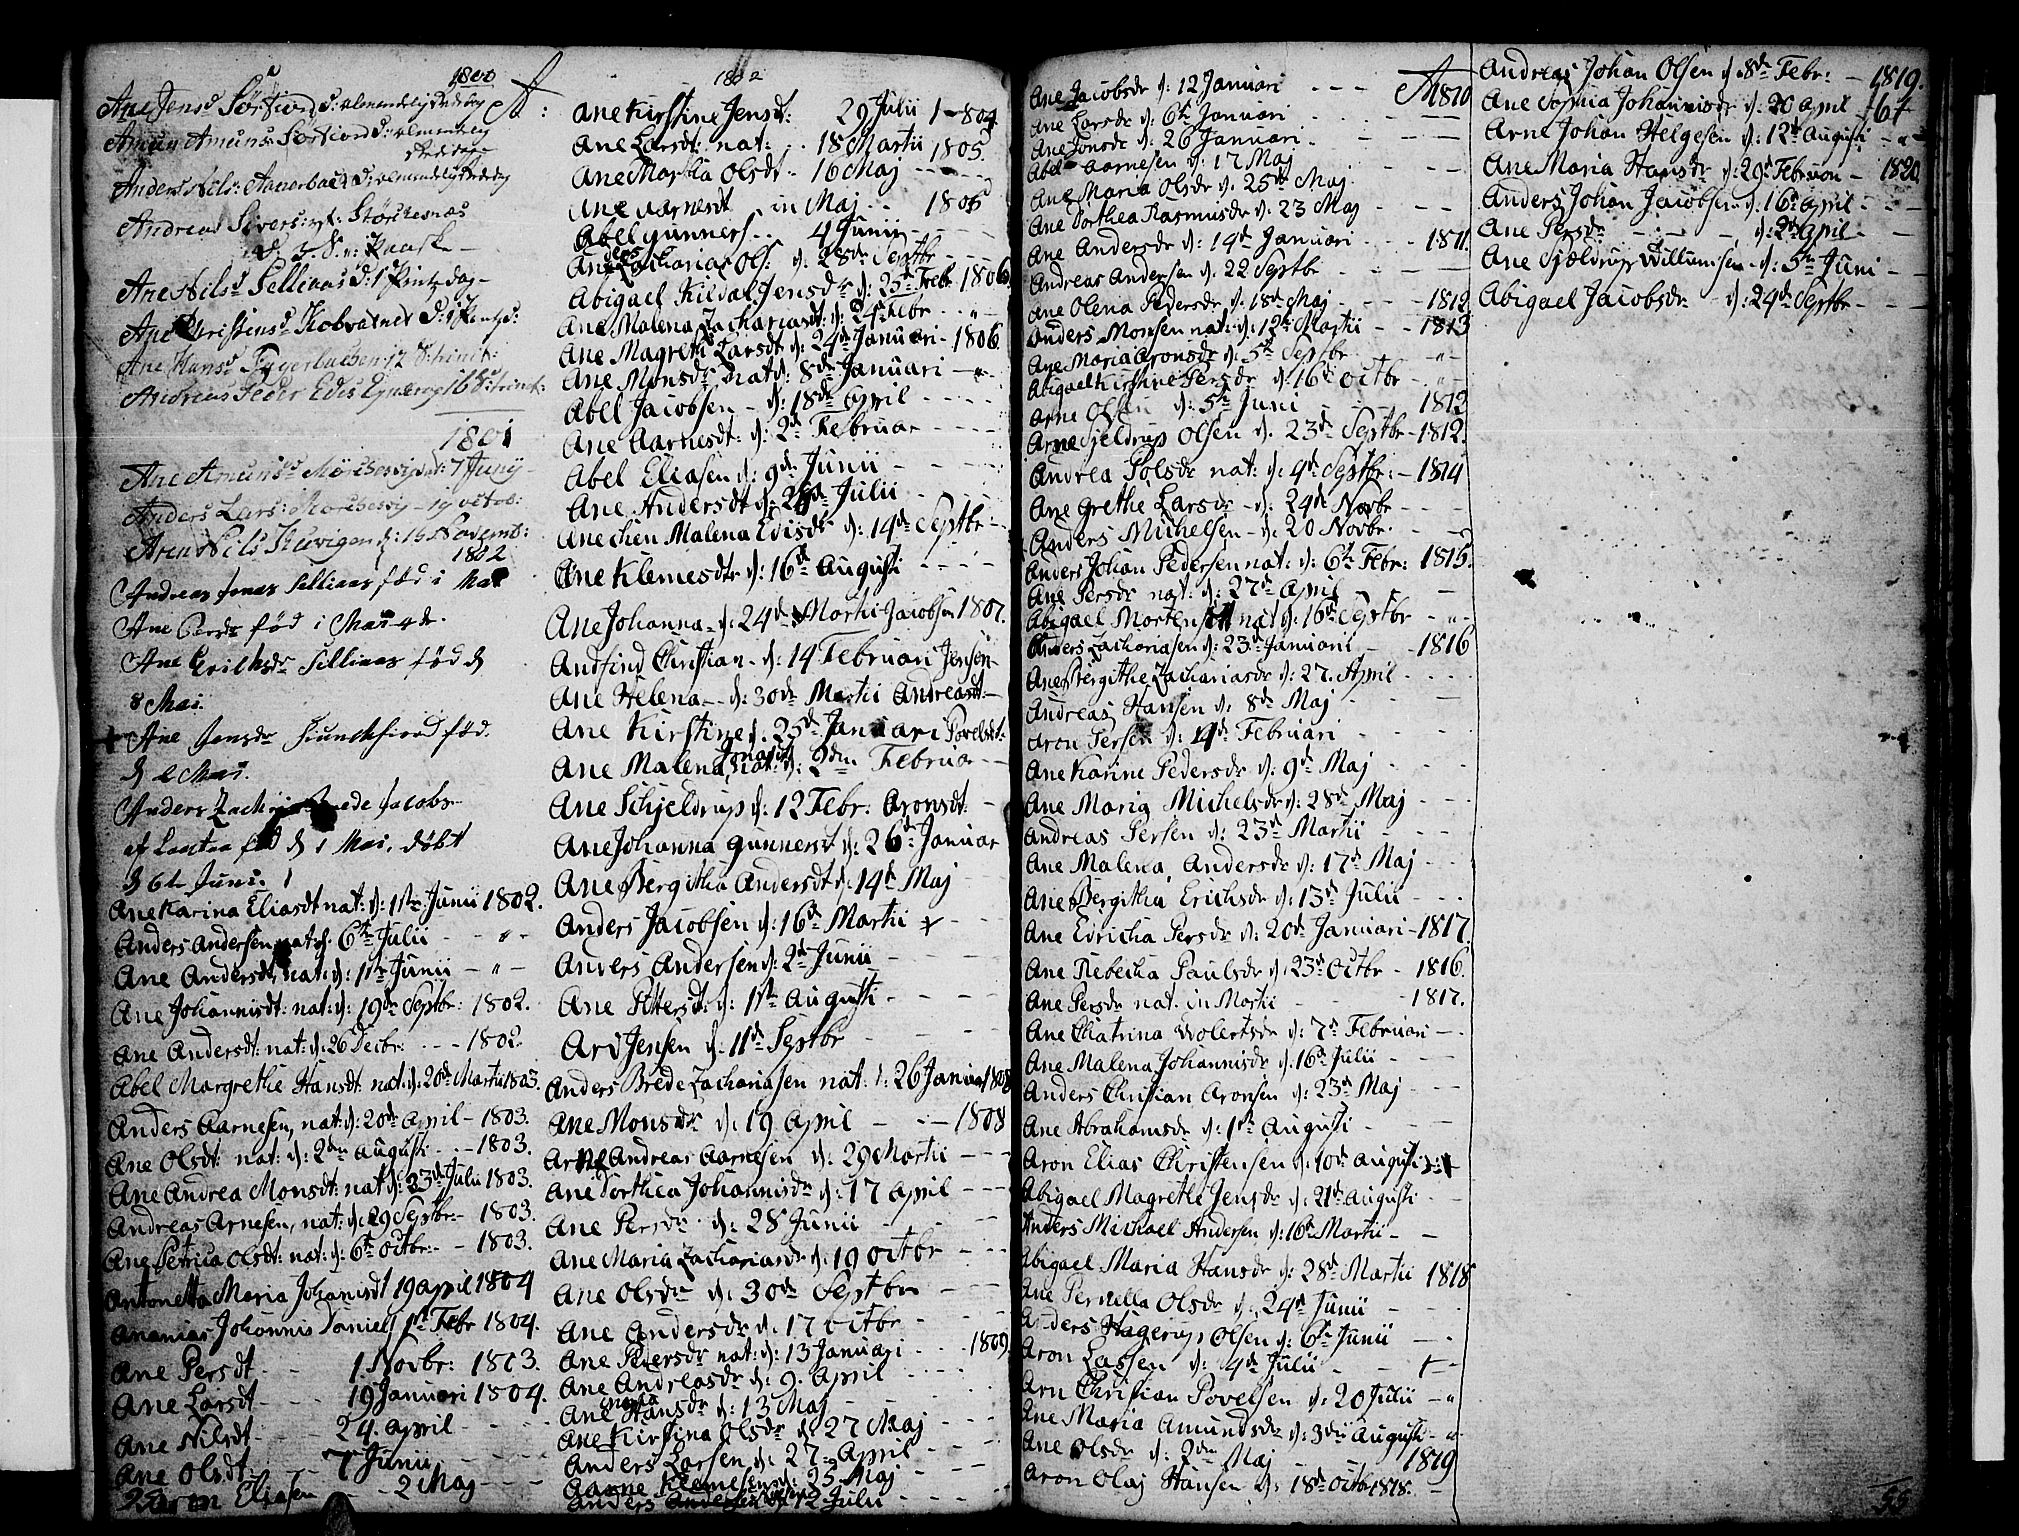 1800
Ane Jensd Sørfiord D: almendelig Bededag
Amun Amuns: Sørfiord D: almendelig
Bededag
Anders Nils: D: almendelig Bededag
Andreas Sivers:
D: 3. S. n: Paaske
Ane Nilsd Sellivas D: 1 Pintzdag
Ane Christensd Kobvatnet D: 1 Pintzd:
Ane Hansd 12 S: trinit:
Andreas Peder Edis 16 S: trinit:
1801
Ane Amunsd nat: 7 Junij
Anders Lars: 19 octob:
Aren Nils d: 15 Novemb:
1802
Andreas Jonas Sellivas fød i Mai
Ane Persdr fød i Mai 4de
Ane Erichsdr Sellivas fød d
8 Mai.
Ane Jensdr fød
d 2 Mai.
Anders Zachrias Brede Jacobs
af fød d 1 Mai, døbt
d 6te Juni.
Ane Karina Eliasdt nat: d: 1ste Junii 1802.
Anders Andersen nat d: 6te Julii - " -
Ane Andersdt, nat: d: 1ste Junii - " -
Ane Johannisdt: nat: d: 19de Septbr: 1802.
Ane Andersdt: nat: d: 26 Decbr: - - - 1802
Abel Margrethe Hansdt nat: d: 20de Martii 1803.
Anders Aarnesen, nat: d: 20de April - 1803.
Ane Olsdt: nat: d: 2den Augusti - 1803.
Ane Andrea Monsdt: nat d: 23de Julii 1803.
Andreas Arnesen, nat: d: 29 Septbr: - 1803.
Ane Petrica Olsdt: nat: d: 6te Octbr: - 1803.
Antonetta Maria Johanisdt 19 April 1804
Ananias Johannis Daniels 1ste Febr 1804.
Ane Persdt - - 1. Novbr: 1803.
Ane Larsdt - - 19 Januari 1804.
Ane Nilsdt - - 24. April - - -
Ane Olsdt - - 7 Junii - - -
Eliasen - - 2 Maj - - -
A: 1802
Ane Kirstine Jensdt: 29 Julii 1-804
Ane Larsdt nat: - - 18 Martii 1805.
Ane Martha Olsdt - 16 Maj - - -
Ane Aarnesdt in Maj - - 1805
Abel Gunners - - 4 Junii - - -
Ane Zacharias Ols: d: 28de Septbr
Abigael Kildal Jensdr d: 23de Febr 1806
Ane Malena Zachariasdt: d: 24de Febr - " -
Ane Magreth Larsdt d: 24de Januari - 1806
Ane Monsdr nat d: 8de Januari - " -
Abel Jacobsen - d: 18de April - - -
Ane Aarnesdt: d: 2de Februar - - -
Abel Eliasen d: 9de Junii - - -
Ane Andersdt d: 28de Julii - - -
Ane Malena Edisdr d: 14de Septbr - -
Ane Klemesdtr d: 16de Augusti - - -
Ane Johanna - d: 24de Martii Jacobsen 1807.
Andfind Christian - d: 14 Februari Jensen -
Ane Helena - - d: 30de Martii Andreasdt: -
Ane Kirstine d. 25de Januari Povelsdt:
Ane Malena Jonasdt nat: d: 9den Februar - -
Ane Schjeldrup d: 12 Febr: Aronsdt: -
Ane Johanna Gunnersdt d: 26de Januar
Ane Bergitha Andersdt d: 14de Maj - -
Anders Jacobsen d: 16de Martii + - -
Anders Andersen d: 2de Junii - - -
Ane Pettersdt: d: 1ste Augusti - - -
Ard Jensen d: 11de Septbr - - -
Anders Brede Zachariasen nat: d: 26 Januar 1808
Ane Monsdr d: 19 April - - - 1808
Arne Andreas Aarnesen d: 29 Martii - - -
Ane Dorthea Johannisdr d: 17 April - - -
Ane Persdr d: 28 Junii - - -
Ane Maria Zachariasdr d: 19 Octbr - - -
Ane Olsdr d: 30de Septbr - -
Ane Andersdr d. 17 Octbr - - -
Ane Pedersdr nat: d: 13 Januari - - - 1809
Ane Andreasdr d: 9. April - - -
Ane Maria Hansdr d: 13 Maj - - -
Ane Kirstina Olsdr d: 27 Maj - - -
Anders Larsen d: 27de April - - -
Aarne Klemesen d: 25 Maj - -
Anders Andersen d: 12 Julii - -
A
Ane Jacobsdr d: 12 Januari - - - 1810
Ane Larsdr d: 6te Januari - - -
Ane Jonsdr d: 26 Januari - - -
Abel Aarnesen d: 17 Maj - - -
Ane Maria Olsdr d: 25de Maj - - -
Ane Dorthea Rasmusdr d: 23 Maj - - -
Ane Andersdr d: 14de Januari - - - 1811.
Andreas Andersen d: 22 Septbr - - -
Ane Olena Pedersdr d: 18de Maj - - - 1812
Anders Monsen nat: d: 12te Martii - - 1813
Ane Maria Aronsdr d: 5te Septbr - " -
Abigael Kirstine Persdr d: 16de Octbr - " -
Arne Olsen d: 5te Junii - - - 1812
Arne Sjeldrup Olsen d. 23de Septbr - 1812.
Andrea Polsdr nat: d: 4de Septbr: - 1814
Ane Grethe Larsdr - d: 24de Novbr - - -
Anders Michelsen - d: 20 Novbr. - - -
Anders Johan Pedersen nat: d: 6te Febr: 1815.
Ane Persdr nat: d: 27de April - - -
Abigael Mortens nat d: 16de Septbr - " -
Anders Zachariasen d: 23de Januarii - - 1816
Ane Bergithe Zachariasdr d: 27. April - - -
Andreas Hansen d: 8de Maj - - -
Aron Persen d: 14de Februari - - -
Ane Karine Pedersdr d: 9de Maj - - -
Ane Maria Michelsdr d: 28de Maj - - -
Andreas Persen d: 23de Martii - - -
Ane Malena Andersdr d: 17de Maj - - -
Ane Bergitha Erichsdr d: 13de Julii - - -
Ane Edricha Persdr d: 20de Januari - 1817.
Ane Rebecka Paulsdr d: 23de Octbr - 1816.
Ane Persdr nat. in Martii - - - 1817.
Ane Chatrina Wolertsdr d: 7de Februari - -
Ane Malena Johannisdr d: 16de Julii - - -
Anders Christian Aronsen d: 23de Maj - - -
Ane Abrahamsdr d: 1ste Augusti - - -
Aron Elias Christensen d: 10de Augusti
Abigael Magrethe Jensdr d: 21de Augusti - -
Anders Michael Andersen d: 16de Martii - -
Abigael Maria Hansdr d: 28de Martii 1818
Ane Pernella Olsdr d: 24de Junii - - -
Anders Hagerup Olsen d: 6te Junii - -
Aron Lassen d: 4de Julii - - + -
Arn Christian Povelsen d: 20 Julii - "
Ane Maria Amundsdr d: 3die Augusti - " -
Ane Olsdr d: 2den Maj - - - 1819
Aron Olaj Hansen d: 18de Octbr 1818. -
Andreas Johan Olsen d. 8de Febr: - 1819.
Ane Sophia Johannisdr d: 20 April
Arne Johan Helgesen d: 12te Augusti - " -
Ane Maria Hansdr d: 29de Februari - 1820
Anders Johan Jacobsen d: 16de April - - -
Ane Persdr - - - d: 2de April - -
Ane Sjældrup Willumsen - d: 5te Juni - -
Abigael Jacobsdr - d: 24de Septbr - -
55